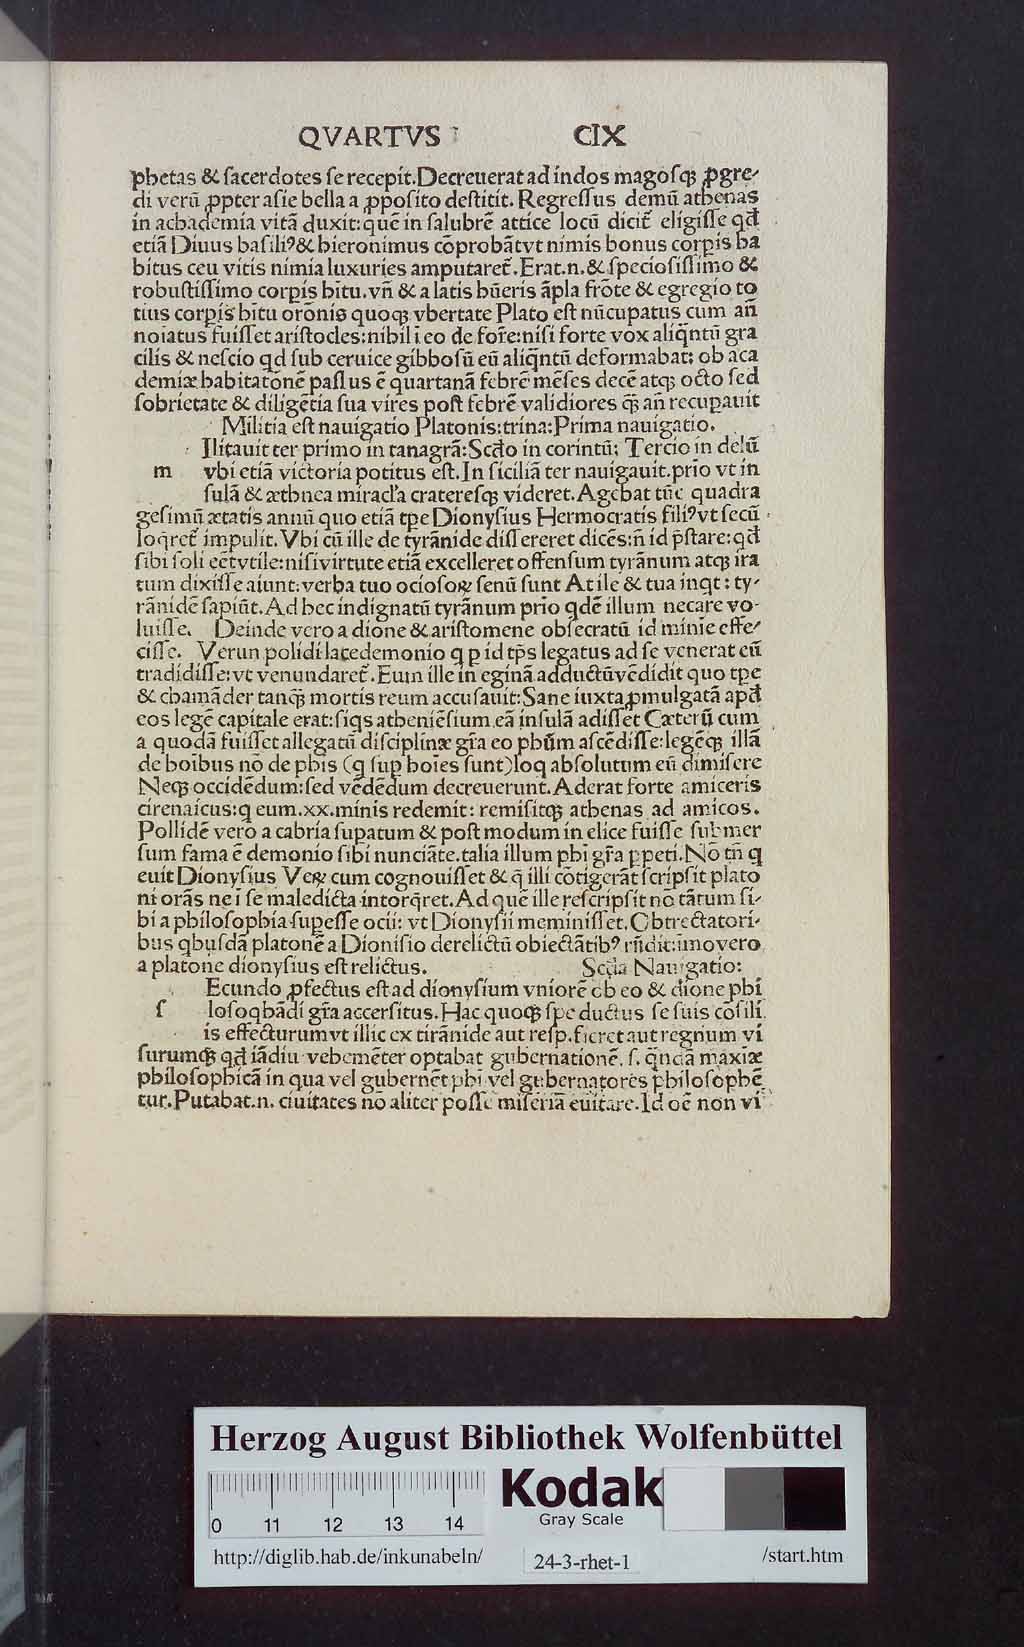 QVARTVS CIX
phetas & sacerdotes se recepit. Decreuerat ad indos magosqꝫ ꝓgre-
di verū ꝓpter asie bella a ꝓposito destitit. Regressus demū athenas
in achademia vitā duxit: quē in salubrē attice locū dicit̃ eligisse qd̃
etiā Diuus basiliꝰ & hieronimus cōprobāt vt nimis bonus corpis ha
bitus ceu vitis nimia luxuries amputaret̃. Erat .n. & speciosissimo &
robustissimo corpis hītu. vñ & a latis hūeris āpla frōte & egregio to
tius corpis hītu orōnis quoqꝫ vbertate Plato est nūcupatus cum añ
noiatus fuisset aristocles: nihil ī eo de for̃e: nisi forte vox aliq̃ntū gra
cilis & nescio qd sub ceruice gibbosū eū aliq̃ntū deformabat: ob aca
demiæ habitatōnē passus ē quartanā febrē mēses decē atqꝫ octo sed
sobrietate & diligētia sua vires post febrē validiores q̃ꝫ añ recuꝑauit
Militia est nauigatio Platonis: trina: Prima nauigatio.
Ilitauit ter primo in tanagrā: Scd̃o in corintū; Tercio in delū
m vbi etiā victoria potitus est. In siciliā ter nauigauit. prio vt in
sulā & æthnea miracl'a crateresqꝫ videret. Agebat tūc quadra
gesimū ætatis annū quo etiā tꝑe Dionysius Hermocratis filiꝰ vt secū
loq̃ret̃ impulit. Vbi cū ille de tyrānide dissereret dicēs: ñ id p̄stare: qd̃
sibi soli eēt vtile: nisi virtute etiā excelleret offensum tyrānum atqꝫ ira
tum dixisse aiunt: verba tuo ociosoꝝ senū sunt At ile & tua inqt: ty-
rānidē sapiūt. Ad hec indignatū tyrānum prio qdē illum necare vo-
luisse. Deinde vero a dione & aristomene obsecratū id minīe effe-
cisse. Verun polidi lacedemonio q ꝑ id tp̄s legatus ad se venerat eū
tradidisse: vt venundaret̃. Eum ille in eginā adductū vēdidit quo tꝑe
& chamāder tanq̃ꝫ mortis reum accusauit: Sane iuxta ꝓmulgatā apd̃
eos legē capitale erat: siqs atheniēsium eā insulā adisset Cæterū cum
a quodā fuisset allegatū disciplinæ gr̃a eo phūm ascēdisse: legēqꝫ illā
de hoībus nō de phīs (q suꝑ hoīes sunt) loq absolutum eū dimisere
Neqꝫ occidēdum: sed vēdēdum decreuerunt. Aderat forte amiceris
cirenaicus: q eum .xx. minis redemit: remisitqꝫ athenas ad amicos.
Pollidē vero a cabria suꝑatum & post modum in elice fuisse submer
sum fama ē demonio sibi nunciāte. talia illum phī gr̃a ꝑpeti. Nō tñ q
euit Dionysius Veꝝ cum cognouisset & q̃ illi cōtigerāt scripsit plato
ni orās ne ī se maledicta intorq̃ret. Ad quē ille rescripsit nō tātum si-
bi a philosophia suꝑesse ocii: vt Dionysii meminisset. Obtrectatori-
bus qbusdā platonē a Dionisio derelictū obiectātibꝰ rñdit: imo vero
a platone dionysius est relictus. Scd̃a Nauigatio:
Ecundo ꝓfectus est ad dionysium vniorē ob eo & dione phī
s losoqbādi gr̃a accersitus. Hac quoqꝫ spe ductus se suis cōsili
is effecturum vt illic ex tirānide aut resp. fieret aut regnum vi
surumqꝫ qd̃ iādiu vehemēter optabat gubernationē. s. q̃ndā maxiæ
philosophicā in qua vel gubernēt phī vel gubernatores philosophē
tur. Putabat .n. ciuitates nō aliter posse miseriā euitare. Id oē non vi
Herzog August Bibliothek Wolfenbüttel
Kodak
Gray Scale
0 11 12 13 14
http://diglib.hab.de/inkunabeln/ 24-3-rhet-1 /start.htm